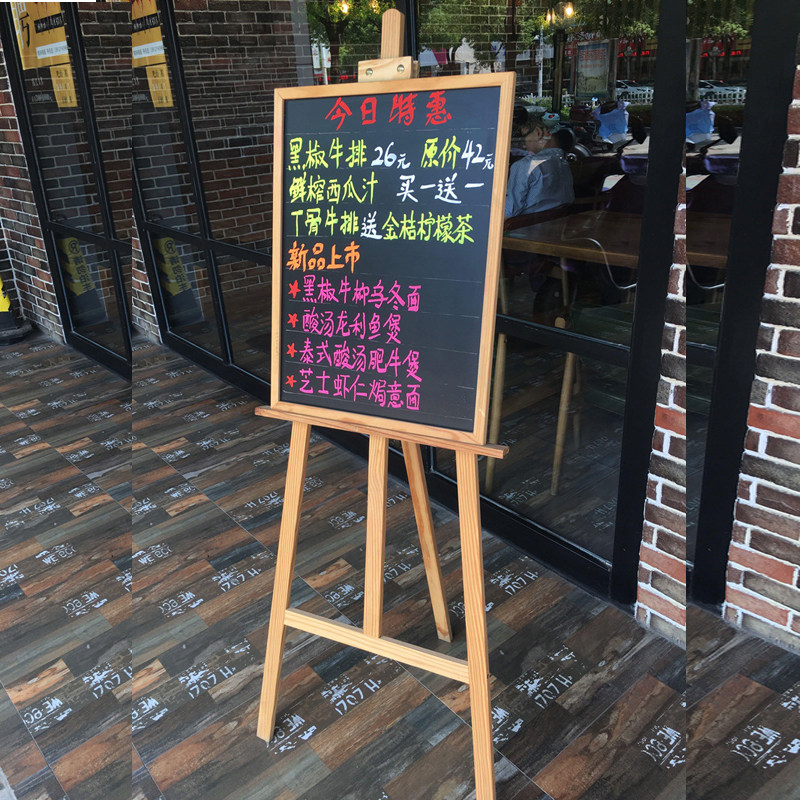 今日特惠
黑椒牛排26元 原价42元
鲜榨西瓜汁 买一送一
丁骨牛排送金桔柠檬茶
新品上市
★黑椒牛柳乌冬面
★酸汤龙利鱼煲
★泰式酸汤肥牛煲
★芝士虾仁焗意面